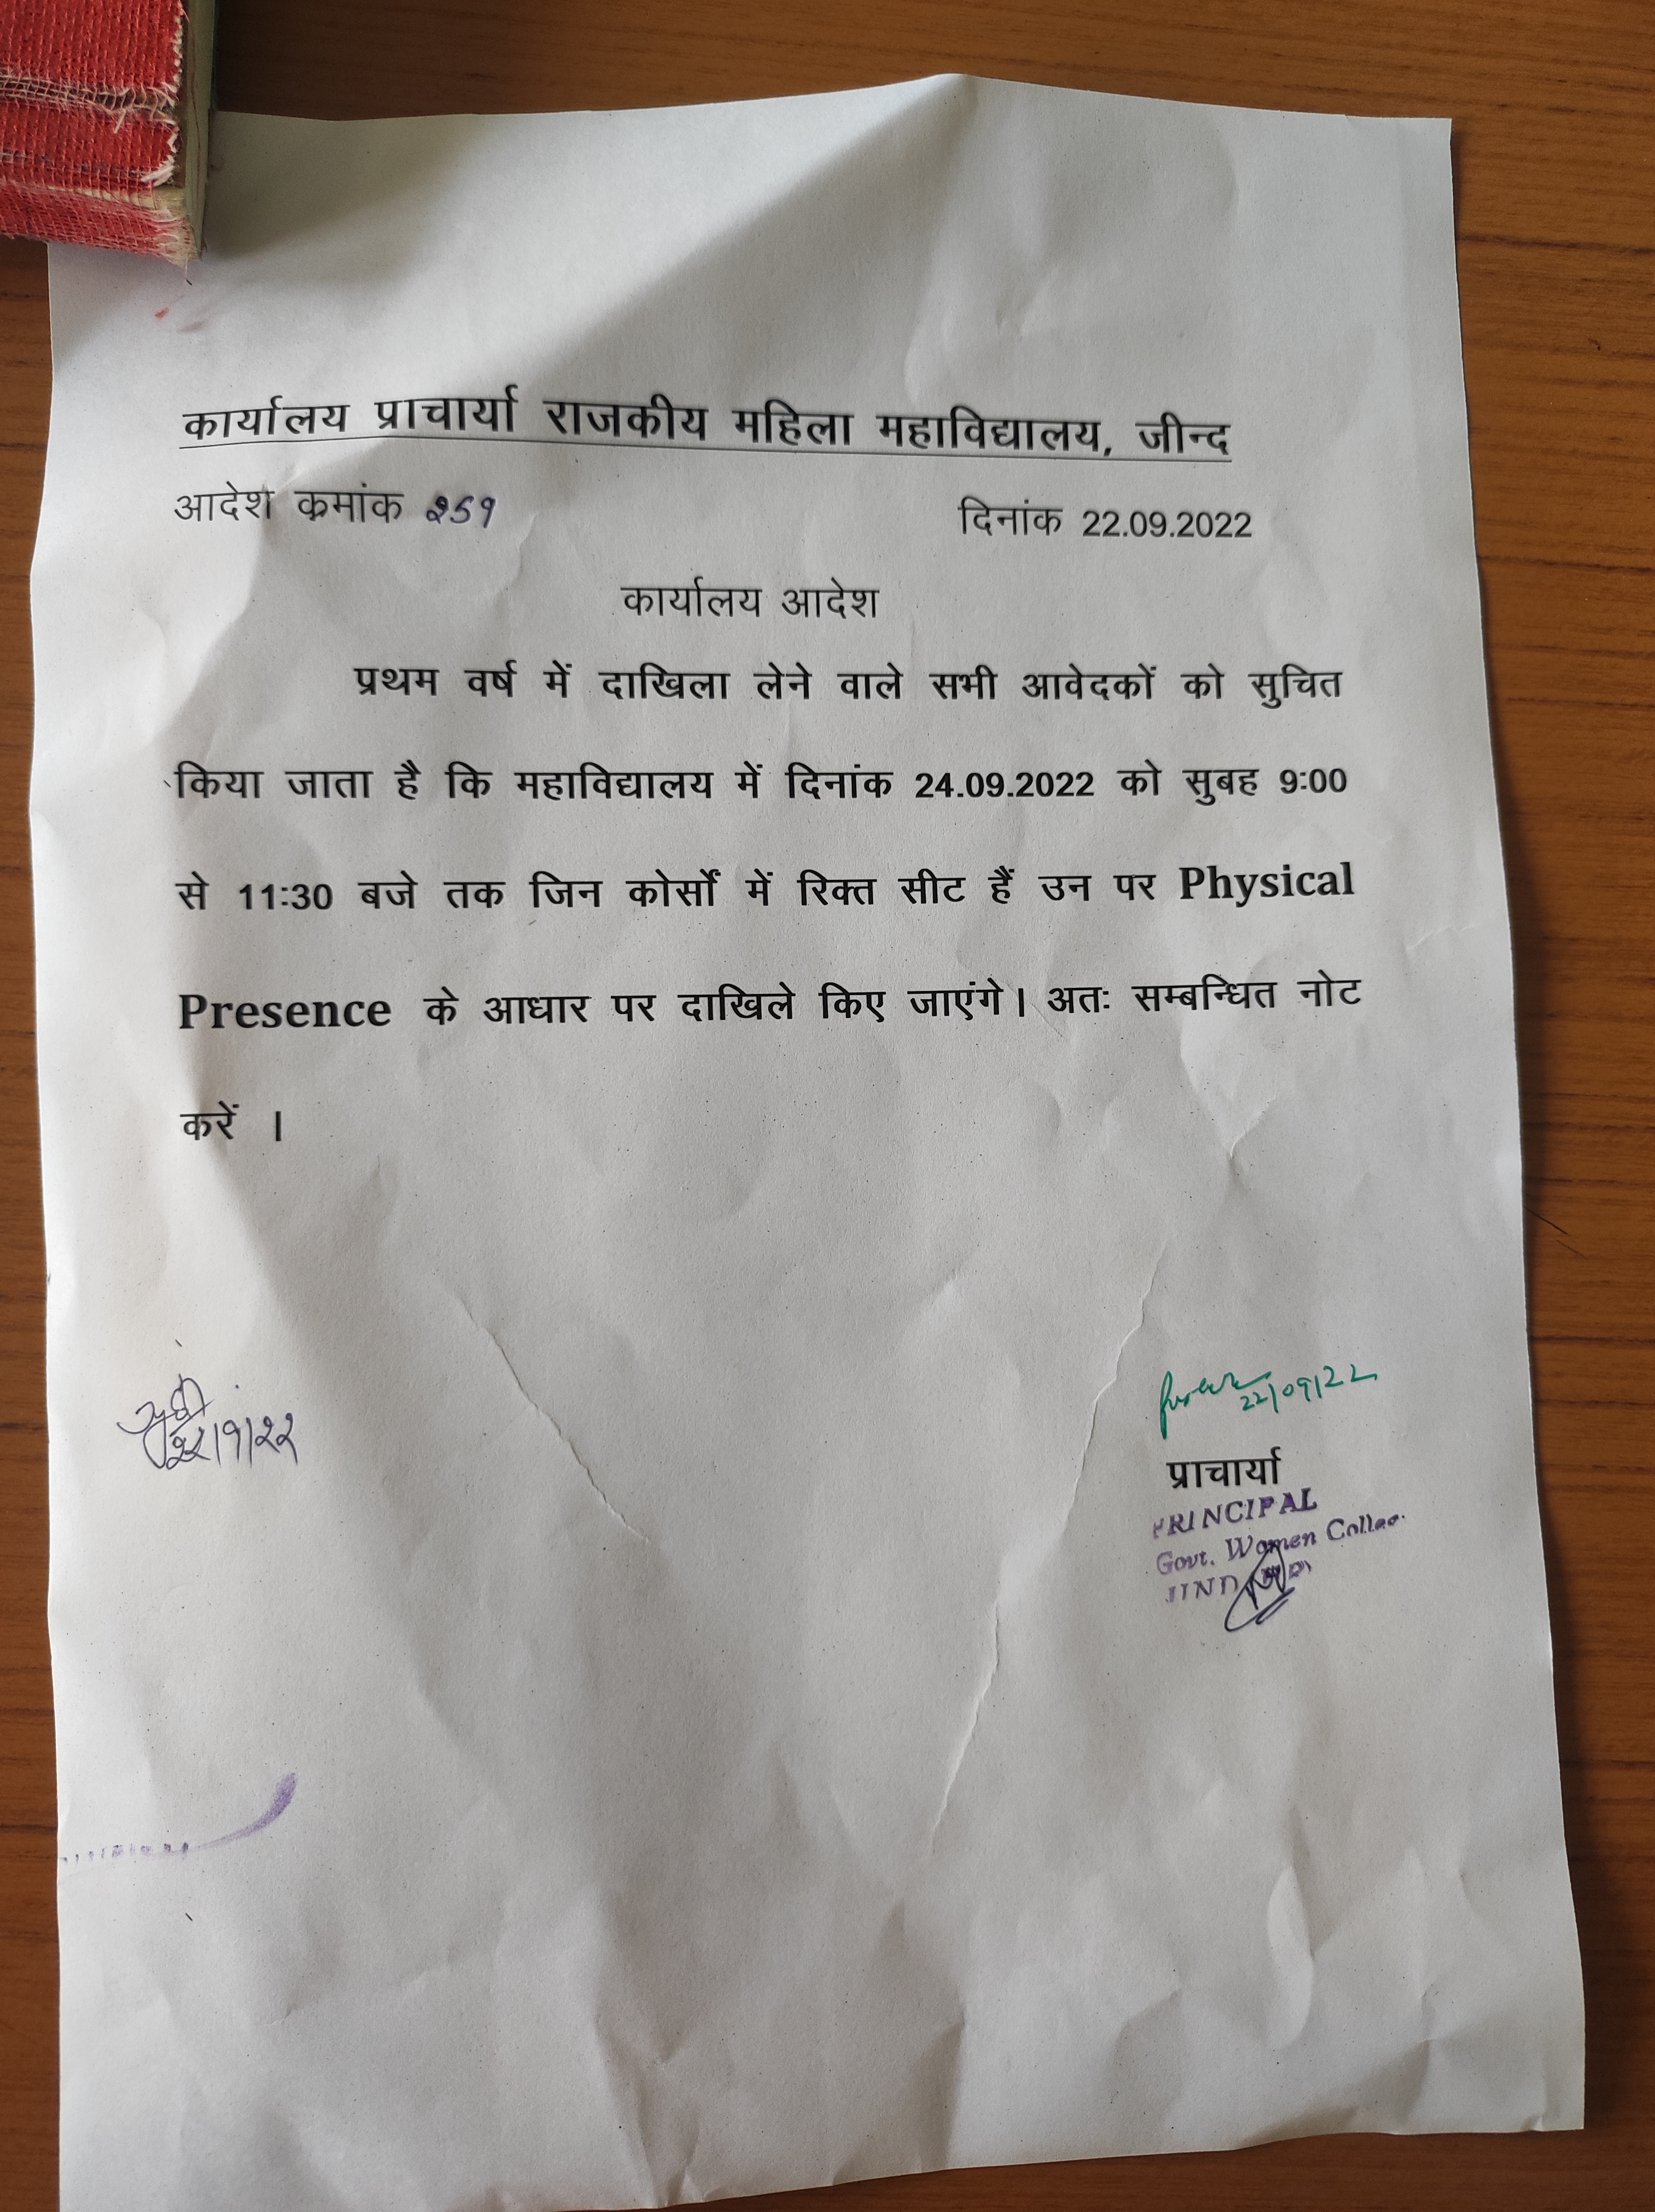 कार्यालय प्राचार्या राजकीय महिला महाविद्यालय, जीन्द
आदेश क्रमांक २59 दिनांक 22.09.2022
कार्यालय आदेश
प्रथम वर्ष में दाखिला लेने वाले सभी आवेदकों को सुचित
किया जाता है कि महाविद्यालय में दिनांक 24.09.2022 को सुबह 9:00
से 11:30 बजे तक जिन कोर्सों में रिक्त सीट हैं उन पर Physical
Presence के आधार पर दाखिले किए जाएंगे। अतः सम्बन्धित नोट
करें ।
22/09/22
२२/9/२२
प्राचार्या
PRINCIPAL
Govt. Women
JIND